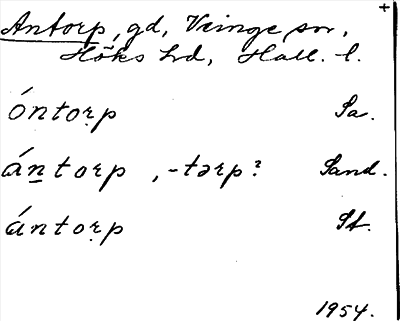 +
Antorp, gd, Veinge sn,
Höks hd, Hall. l.
óntoṛp Sa.
áṉtorp, -tərp? Sand.
ántoṛp St.
1954.